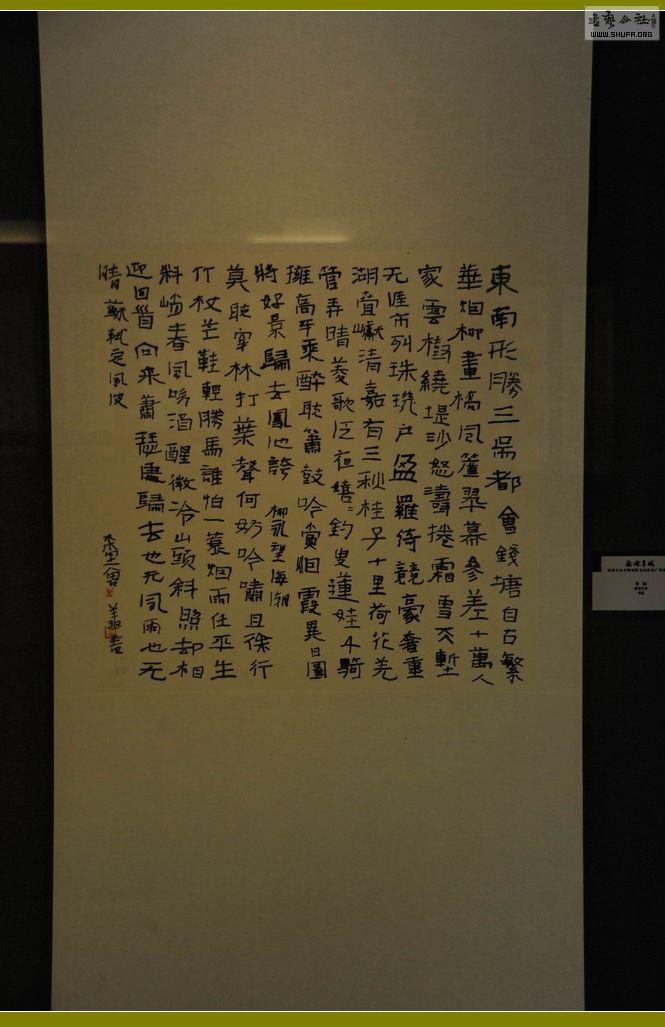 東南形勝三吴都會錢塘自古繁
華烟柳畫橋風簾翠幕參差十萬人
家雲樹繞堤沙怒濤捲霜雪天塹
无涯市列珠璣户盈羅綺競豪奢重
湖疊巘清嘉有三秋桂子十里荷花羌
管弄晴菱歌泛夜嬉嬉釣叟蓮娃千騎
擁高牙乘醉聴簫鼓吟賞烟霞異日圖
將好景歸去鳳池誇 柳永望海潮
莫聴穿林打葉聲何妨吟嘯且徐行
竹杖芒鞋輕勝馬誰怕一蓑烟雨任平生
料峭春風吹酒醒微冷山頭斜照却相
迎回首向来蕭瑟處歸去也无風雨也无
晴 蘇軾定風波
書藝公社
WWW.SHUFA.ORG